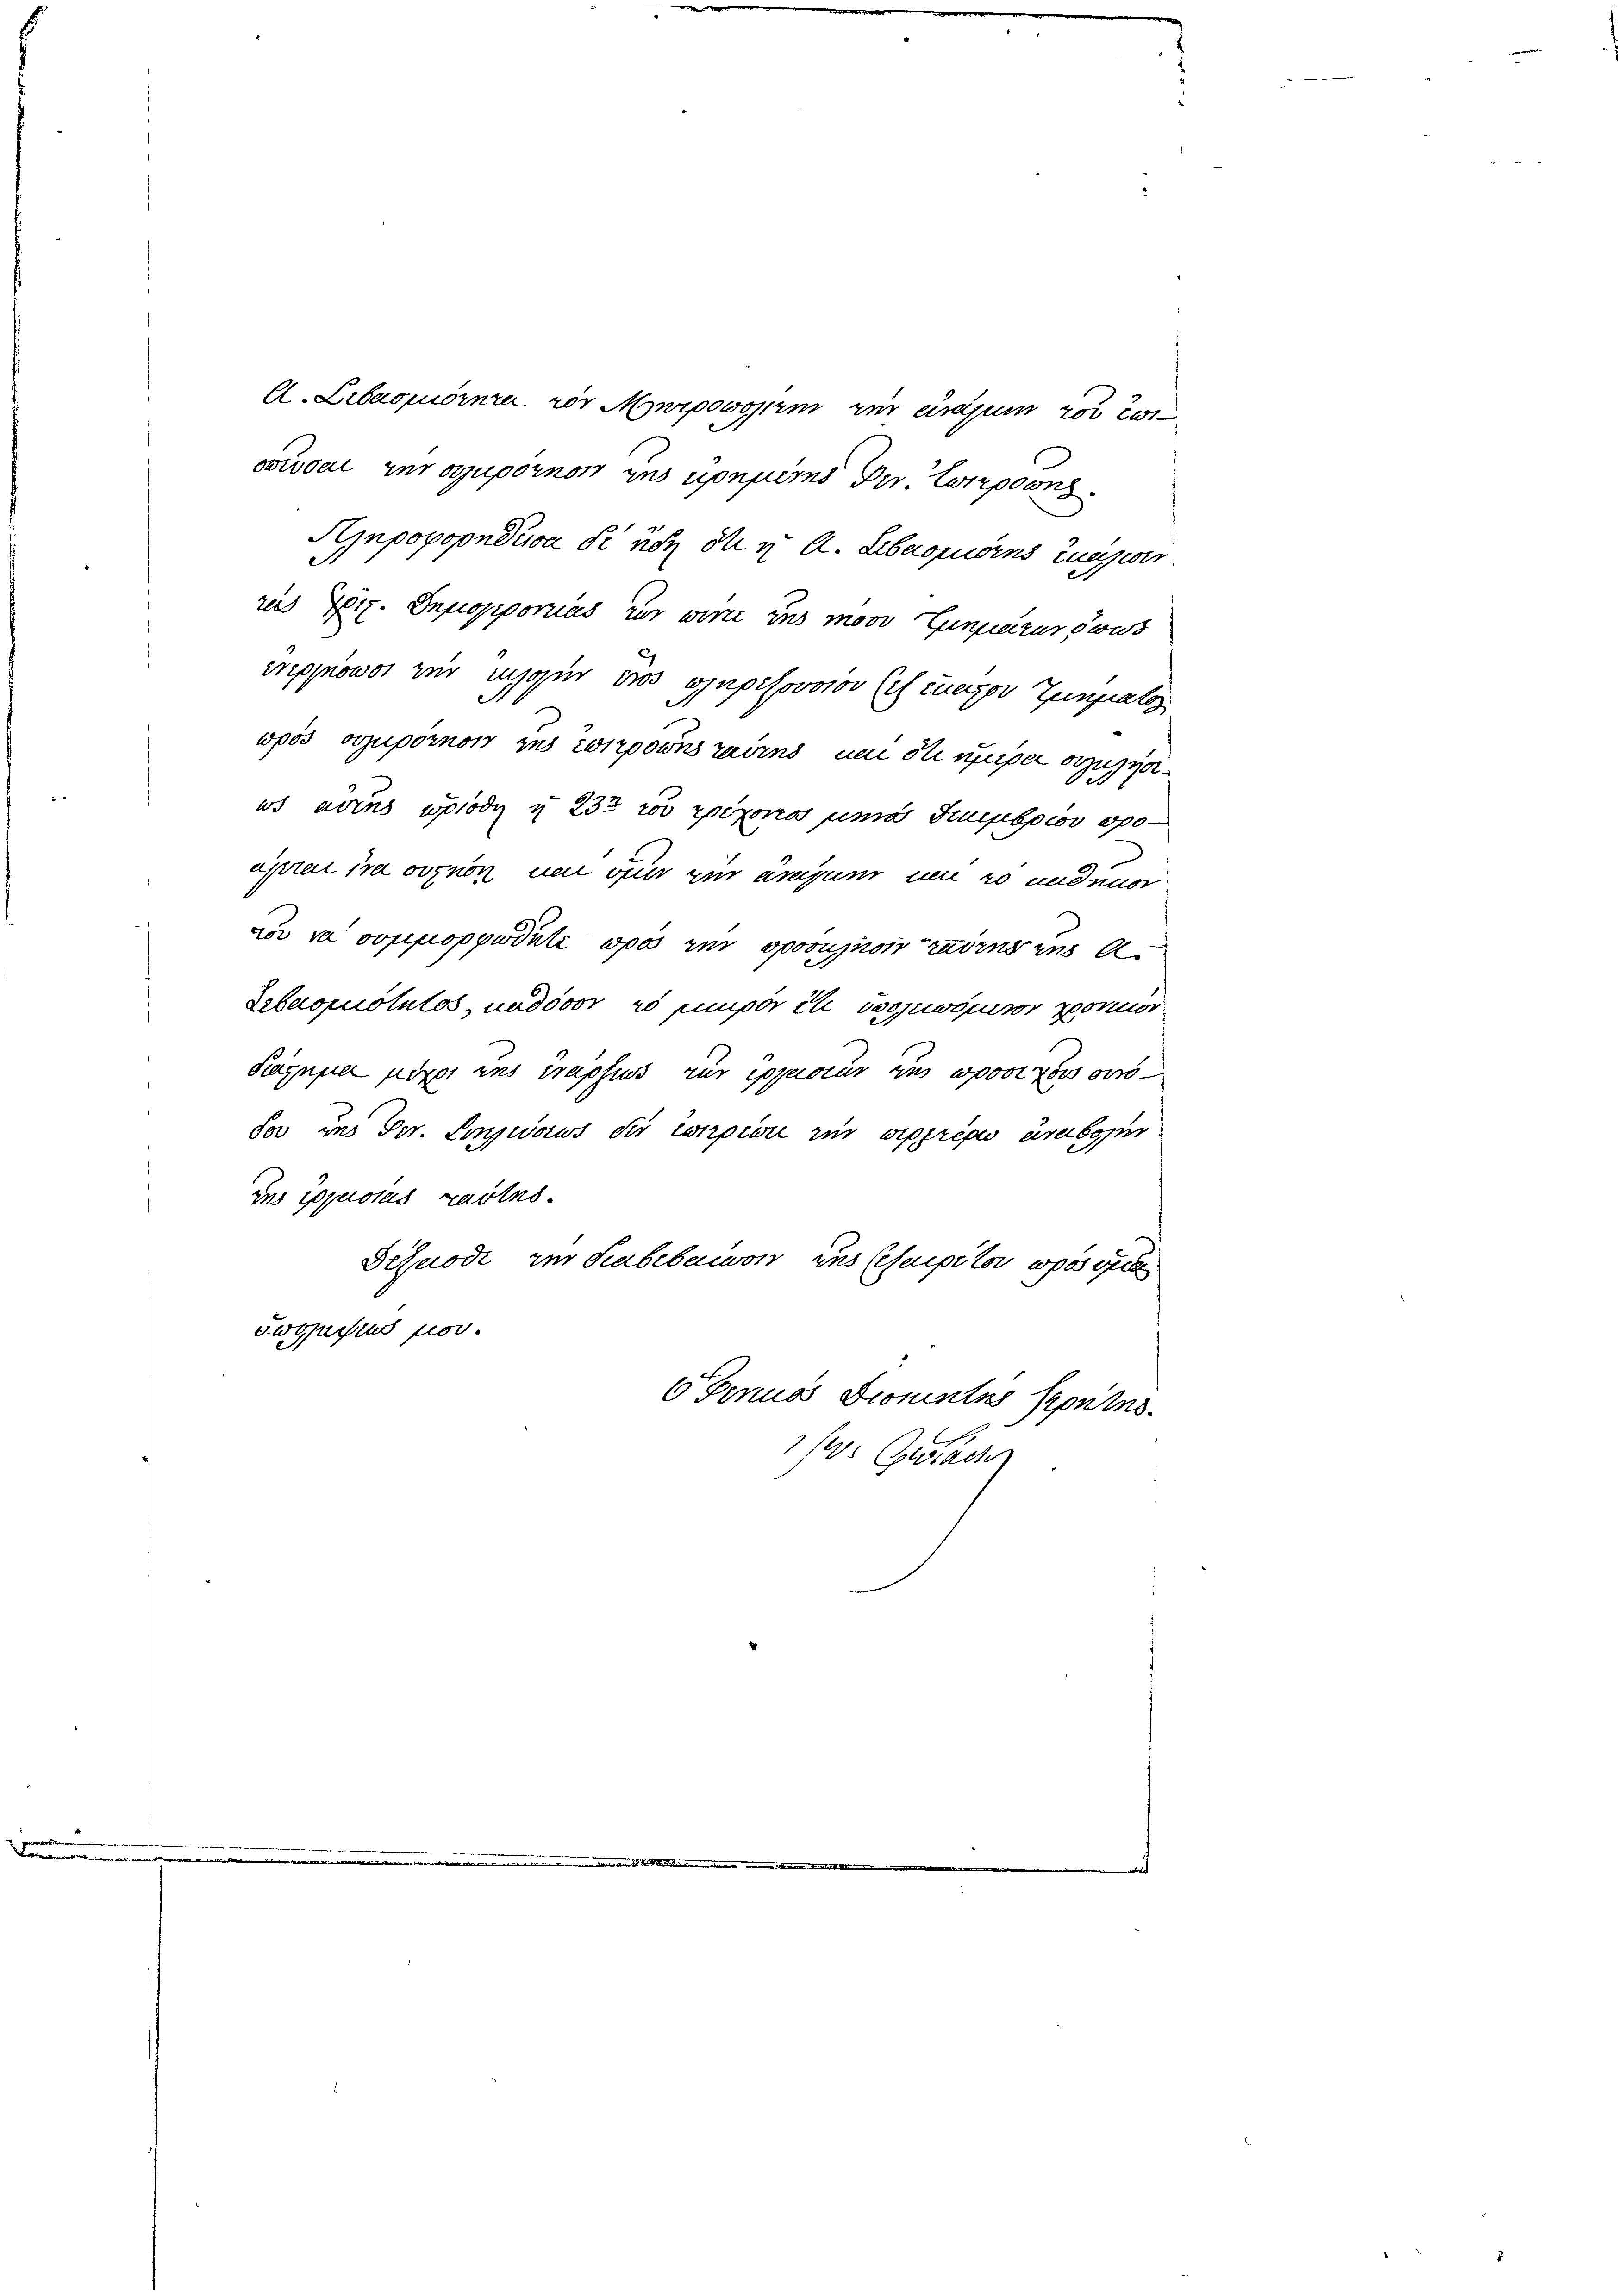 Α. Σεβασμιότητα τὸν Μητροπολίτην τὴν ἀνάγκην τοῦ ἐπι
σπεῦσαι τὴν συγκρότησιν τῆς ῥηθείσης Γεν. Ἐπιτροπῆς.
Πληροφορηθεῖσα δὲ ἤδη ὅτι ἡ Α. Σεβασμιότης ἐκάλεσεν
τὰς Χριστ. Δημογεροντίας τῶν πέντε τῆς νήσου Τμημάτων, ὅπως
ἐνεργήσωσι τὴν ἐκλογὴν ἑνὸς πληρεξουσίου ἐξ ἑκάστου Τμήματος
πρὸς συγκρότησιν τῆς ἐπιτροπῆς ταύτης καὶ ὅτι ἡμέρα συγκλήσε
ως αὐτῆς ὡρίσθη ἡ 23η τοῦ τρέχοντος μηνὸς Δεκεμβρίου προ
άγεται ἵνα συστήσῃ καὶ ὑμῖν τὴν ἀνάγκην καὶ τὸ καθῆκον
τοῦ νὰ συμμορφωθῆτε πρὸς τὴν πρόσκλησιν ταύτην τῆς Α.
Σεβασμιότητος, καθόσον τὸ μικρὸν ἔτι ὑπολειπόμενον χρονικὸν
διάστημα μέχρι τῆς ἐνάρξεως τῶν ἐργασιῶν τῆς προσεχοῦς συνό
δου τῆς Γεν. Συνελεύσεως δὲν ἐπιτρέπει τὴν περαιτέρω ἀναβολὴν
τῆς ἐργασίας ταύτης.
Δέξασθε τὴν διαβεβαίωσιν τῆς ἐξαιρέτου πρὸς ὑμᾶς
ὑπολήψεώς μου.
Ὁ Γενικὸς Διοικητὴς Κρήτης.